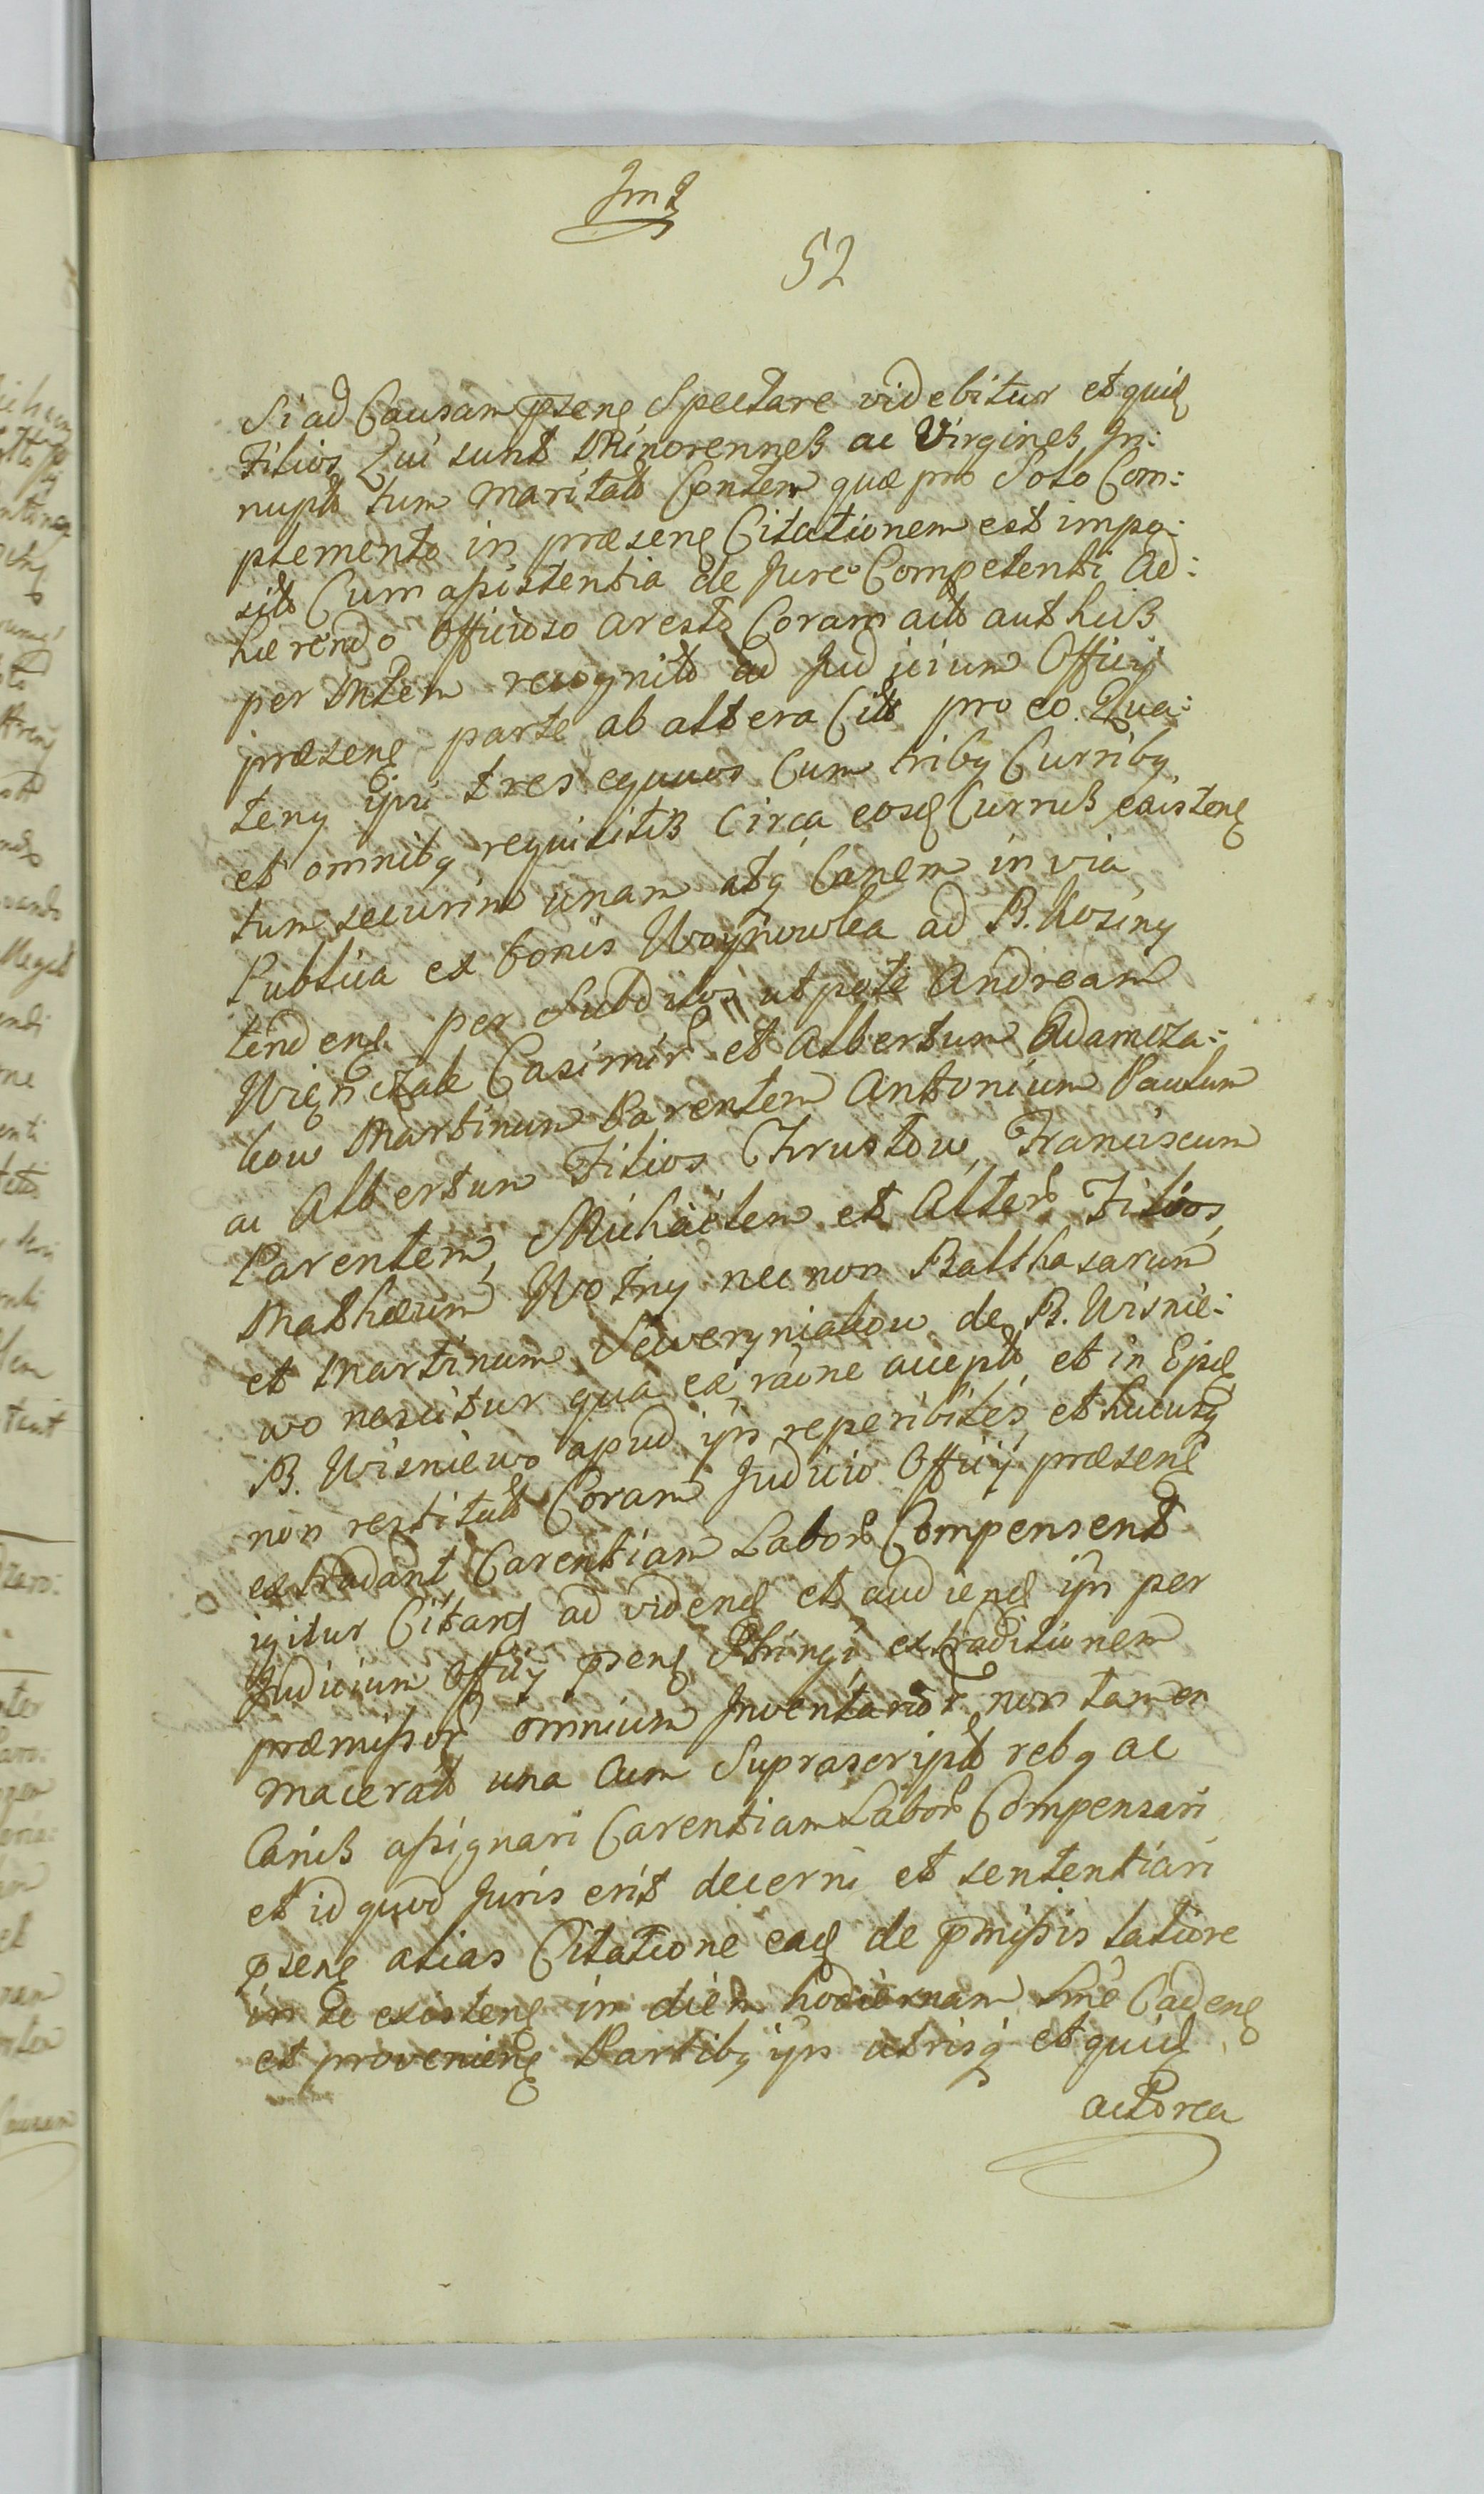 52
Si ad Causam pseng Spectare videbitur et quid
Filios Qui sunt Minorennes ac Virgines In:
nupt tum maritat Conten quæ pro Solo Com:
plemento in præseng Citationem est impo:
sit Cum assistentia de Jure Competenti Ad:
hærendo officioso aresto Coram act aut huis
per Mtem recognito ad Judicium Officij
præseng parte ab altera Citt pro eo Qua:
teny ipsi tres equuos Cum tribq Curribq
et omnibq requisitis Circa eosd Currus existeng
tum securim unam atq Canem in via
Publica ex bonis Woynowka ad B. Kosiny
tendeng per Subditos utpote Andream
Więnczak Casimir et Albertum Adamcza:
kow Martinum Parentem Antonium Paulum
ac Albertum Filios Chrustow, Franciscum
Parentem, Michaelem et Alter Filios,
Mathæum Wotny nec non Balthasarum
et Martinum Seweryniakow de B. Wisnie:
wo nescitur qua ex raone accept et in Ejusd
B. Wisniewo apud ips reperibiles, et hucusq
non restitut Coram Judicio Officij præseng
extradant Carentiam Labor Compensent
igitur Citans ad videng et audieng ips per
Judicium Officij pseng Stringi extraditionem
præmissor omnium Inventarior non tamen
macerat una Cum Suprascript rebq ac
Canis assignari Carentiam Labor Compensari
et id quod Juris erit decerni et sententiari
pseng alias Citatione ead de pmissis latiore
in se existeng in diem hodiernam Lme Cadeng
et provenieng Partibq ips utrisq et quid
actorea